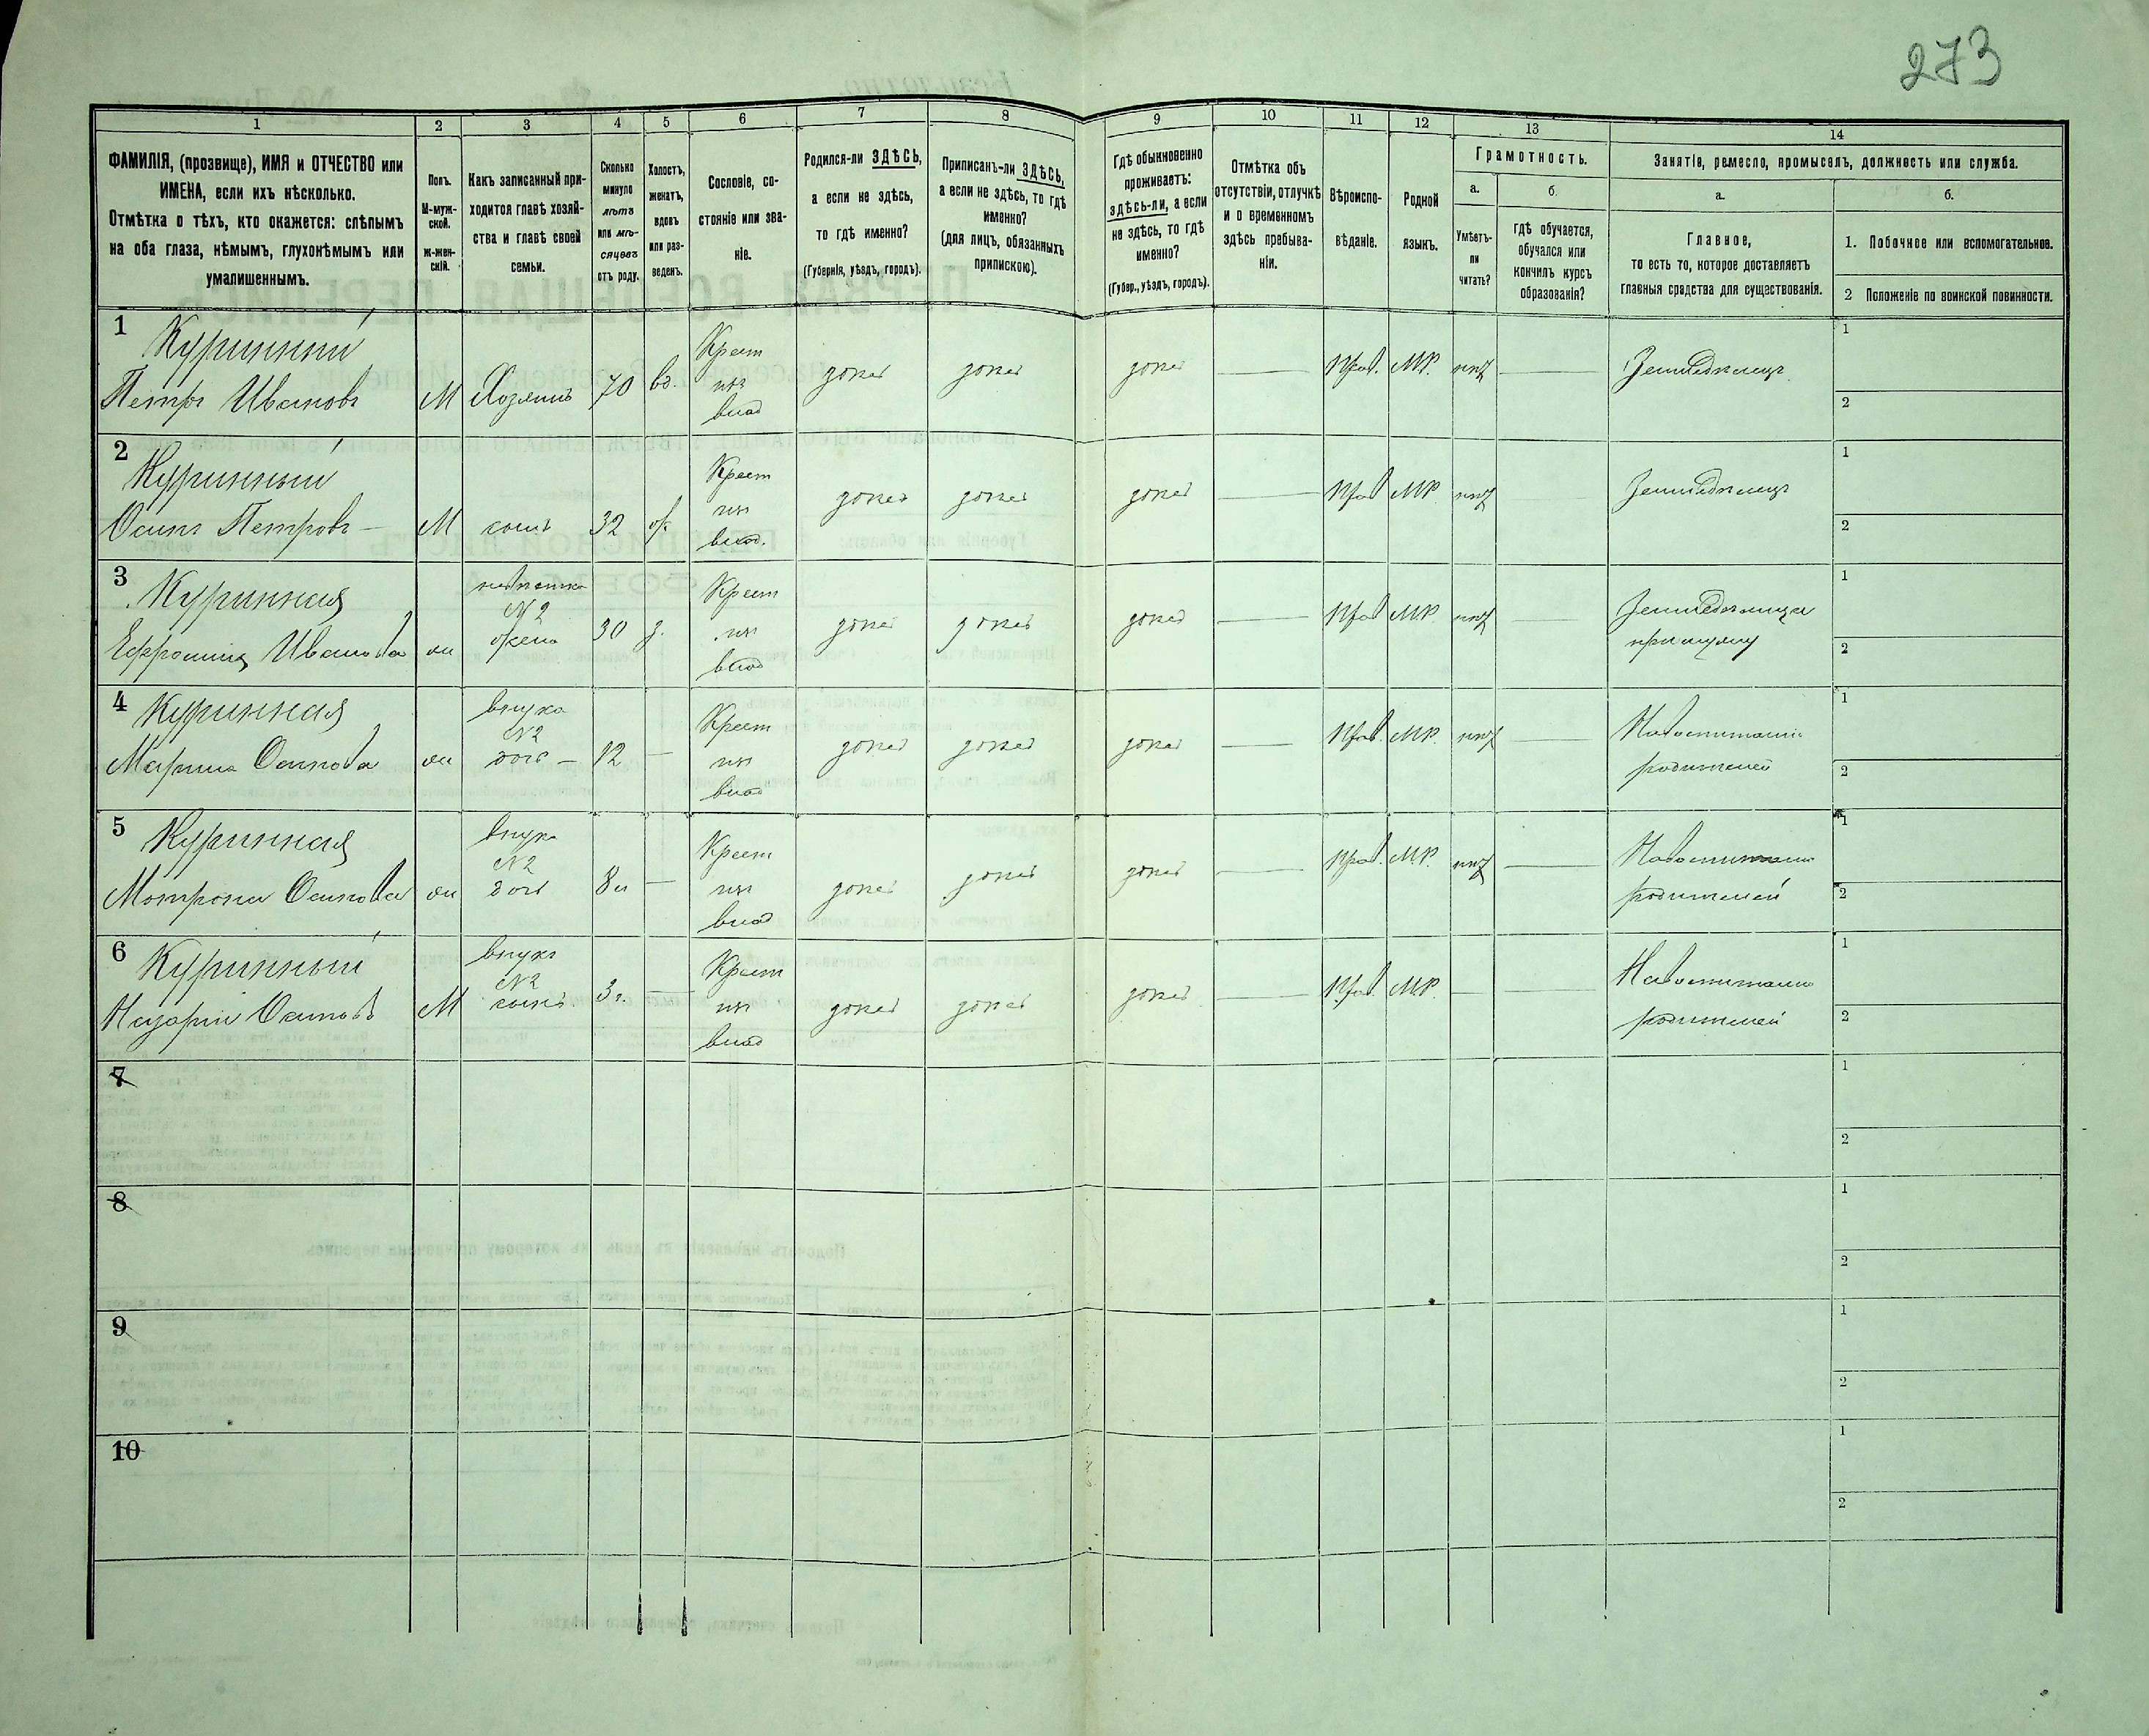 273
1 2 3 4 5 6 7 8 9 10 11 12 13 14
ФАМИЛІЯ, (прозвище), ИМЯ и ОТЧЕСТВО или
ИМЕНА, если ихъ нѣсколько.
Отмѣтка о тѣхъ, кто окажется: слѣпымъ
на оба глаза, нѣмымъ, глухонѣмымъ или
умалишеннымъ.
Полъ.
М-муж-
ской.
ж-жен-
скій.
Какъ записанный при-
ходится главѣ хозяй-
ства и главѣ своей
семьи.
Сколько
минуло
лѣтъ
или мѣ-
сяцевъ
отъ роду.
Холостъ,
женатъ,
вдовъ
или раз-
веденъ.
Сословіе, со-
стояніе или зва-
ніе.
Родился-ли ЗДѢСЬ,
а если не здѣсь,
то гдѣ именно?
(Губернія, уѣздъ, городъ).
Приписанъ-ли ЗДѢСЬ,
а если не здѣсь, то гдѣ
именно?
(для лицъ, обязанныхъ
припискою).
Гдѣ обыкновенно
проживаетъ:
здѣсь-ли, а если
не здѣсь, то гдѣ
именно?
(Губер., уѣздъ, городъ).
Отмѣтка объ
отсутствіи, отлучкѣ
и о временномъ
здѣсь пребыва-
ніи.
Вѣроиспо-
вѣданіе.
Родной
языкъ.
Грамотность.
а.
Умѣетъ-
ли
читать?
б.
гдѣ обучается,
обучался или
кончилъ курсъ
образованія?
Занятіе, ремесло, промыселъ, должность или служба.
а.
Главное,
то есть то, которое доставляетъ
главныя средства для существованія.
б.
1. Побочное или вспомогательное.
2 Положеніе по воинской повинности.
1 Куринный
Петръ Ивановъ М Хозяинъ 70 вд. Крест
изъ
влад здѣсь здѣсь здѣсь — Прав. М.Р. нѣт — Земледѣлецъ
1
2
2 Куринный
Осипъ Петровъ — М сынъ 32 ж Крест
изъ
влад. здѣсь здѣсь здѣсь — Прав М.Р. нѣт Земледѣлецъ
1
2
3 Куринная
Ефросинія Иванова ж невѣстка
№ 2
жена 30 з. Крест
изъ
влад здѣсь здѣсь здѣсь — Прав М.Р. нѣт — Земледѣлица
при мужу
1
2
4 Куринная
Марина Осипова ж внука
№2
дочь — 12 — Крест
изъ
влад здѣсь здѣсь здѣсь — Прав. М.Р. нѣт —
родителей
1
2
5 Куринная
Мотрона Осипова ж внука
№2
дочь 8 — Крест
изъ
влад здѣсь здѣсь здѣсь — Прав. М.Р. нѣт —
родителей
1
2
6 Куринный
Назарій Осиповъ М внукъ
№2
сынъ 3 г. — Крест
изъ
влад здѣсь здѣсь здѣсь — Прав. М.Р. — —
родителей
1
2
7
1
2
8
1
2
9
1
2
10
1
2